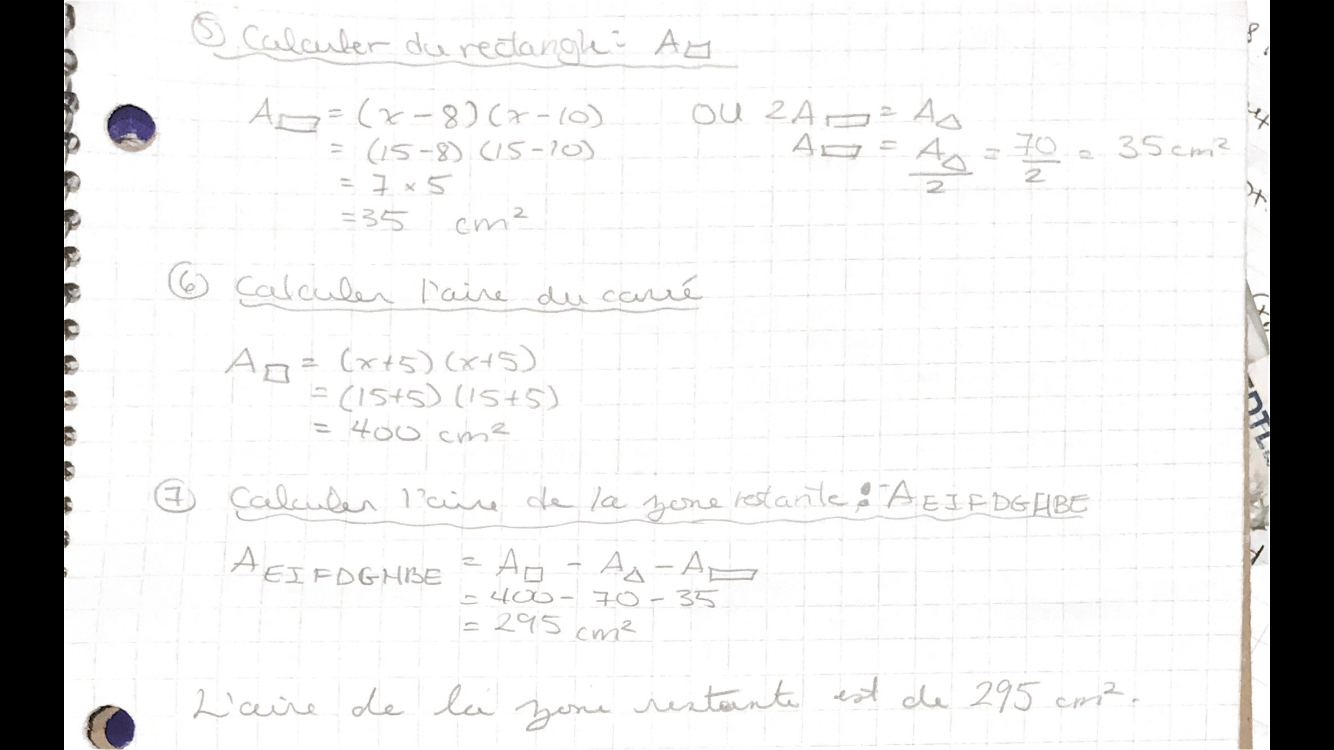 ⑤ Calculer du rectangle : A▭
A▭ = (x-8)(x-10) OU 2A▭ = A△
= (15-8)(15-10) A▭ = A△/2 = 70/2 = 35 cm²
= 7 × 5
= 35 cm²
⑥ Calculer l'aire du carré
A□ = (x+5)(x+5)
= (15+5)(15+5)
= 400 cm²
⑦ Calculer l'aire de la zone restante : A EIFDGHBE
A EIFDGHBE = A□ - A△ - A▭
= 400 - 70 - 35
= 295 cm²
L'aire de la zone restante est de 295 cm².